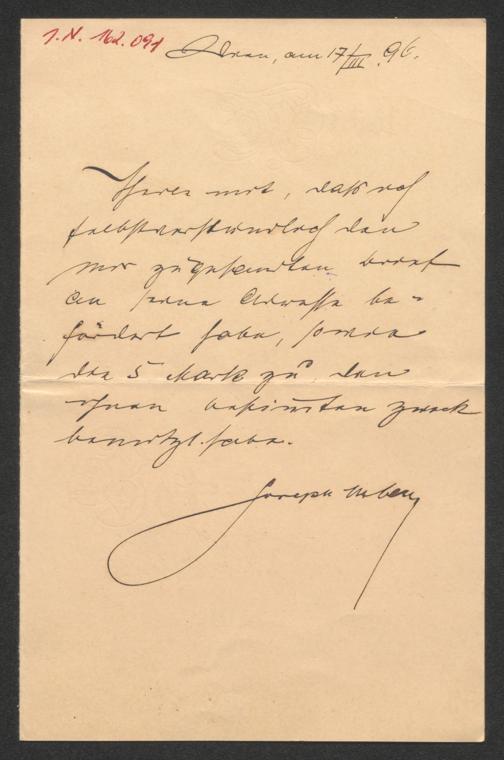 I. N. 162.091
Wien, am 17/III. 96.
Theile mit, daß ich
selbstverständlich den
mir zugesandten Brief
an seine Adresse be-
fördert habe, sowie
die 5 Mark zu den
ihnen bestimmten Zweck
benützt habe.
Joseph